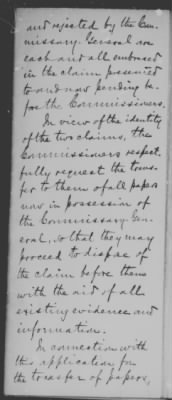 and rejected by the Com-
missary General are
each and all embraced
in the claim presented
to and now pending be-
fore the Commissioners.
In view of the identity
of the two claims, the
Commissioners respect-
fully request the trans-
fer to them of all papers
now in possession of
the Commissary Gen-
eral, so that they may
proceed to dispose of
the claim before them
with the aid of all
existing evidence and
information.
In connection with
this application for
the transfer of papers,